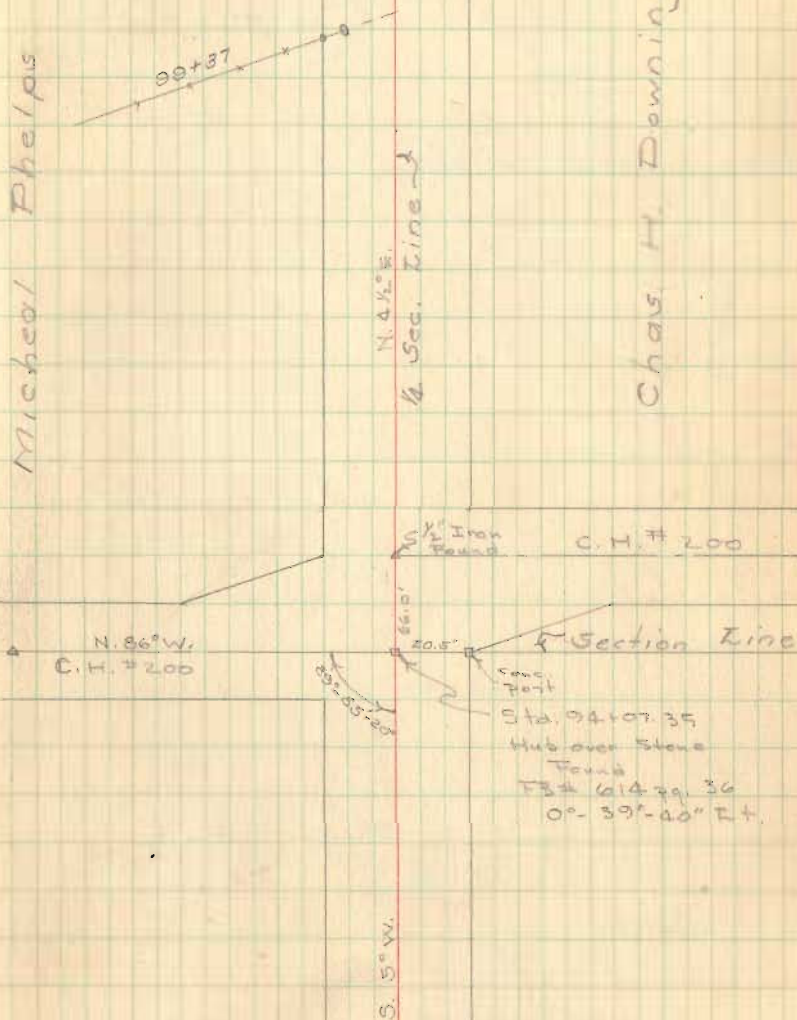 99+37
Micheal Phelps
N. 4 1/2° E.
1/4 Sec. Line
Chas. H. Downing
1/2" Iron
Found
C. H. # 200
66.0'
N. 86° W.
C. H. # 200
20.5'
Section Line
89°-55'-20"
Conc.
Post
Sta. 94+07.35
Hub over Stone
Found
FB# 614 pg. 36
0°-39'-40" Lt.
S. 5° W.